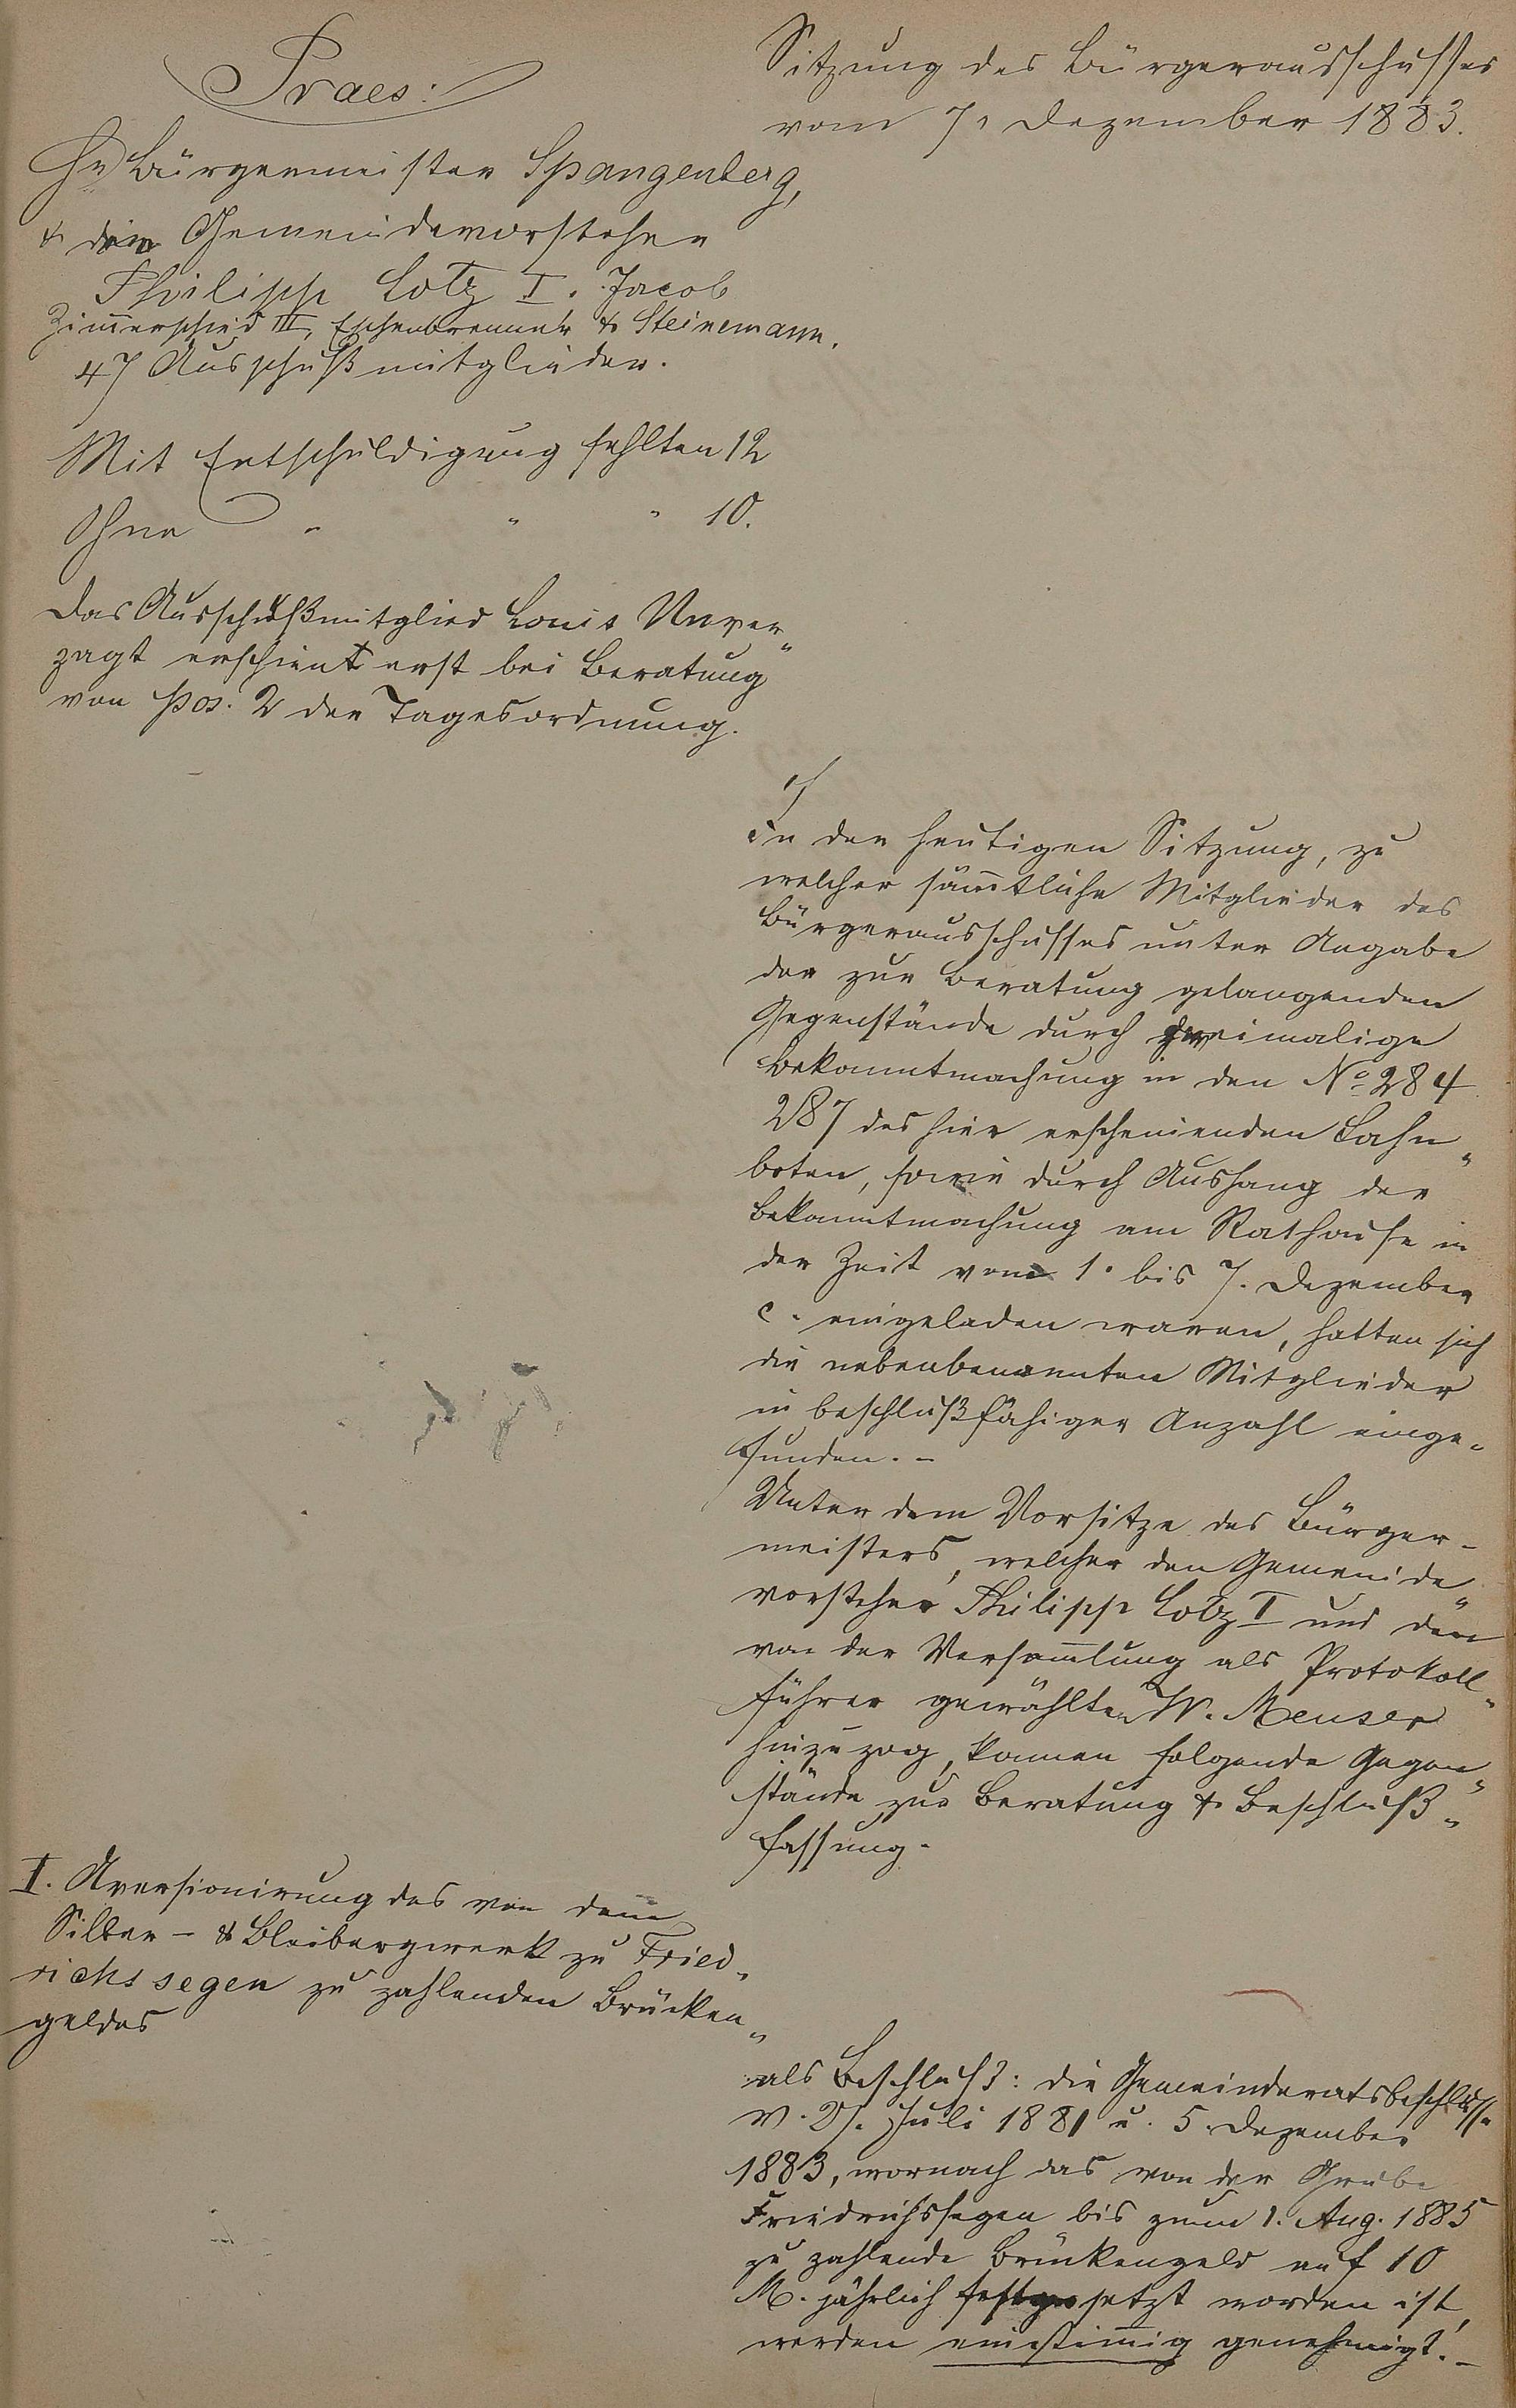 Praes:
Hr Bürgermeister Spangenberg,
& die Gemeindevorsteher
Philipp Lotz I. Jacob
Zimerschied III, Eschenbrenner & Steinemann.
47 Ausschußmitglieder.
Mit Entschuldigung fehlten 12
Ohne " " " 10.
Das Ausschußmitglied Louis Unver„
zagt erschient erst bei Beratung
von pos. 2 der Tagesordnung.
Sitzung des Bürgerausschusses
vom 7. Dezember 1883.
In der heutigen Sitzung, zu
welcher sämtliche Mitglieder des
Bürgerausschusses unter Angabe
der zur Beratung gelangenden
Gegenstände durch zweimalige
Bekanntmachung in den No 284
287 des hier erscheinenden Lahn„
boten, sowie durch Aushang der
Bekanntmachung am Rathause in
der Zeit vom 1. bis 7. Dezember
c. eingeladen waren, hatten sich
die nebenbenannten Mitglieder
in beschlußfähiger Anzahl einge„
funden. –
Unter dem Vorsitze des Bürger-
meisters, welcher den Gemeinde„
vorsteher Philipp Lotz I und den
von der Versamlung als Protokoll„
führer gewählten W. Meuser
hinzuzog, kamen folgende Gegen„
stände zur Beratung & Beschluß„
fassung.
I. Aversionirung des von dem
Silber- & Bleibergwerk zu Fried„
richssegen zu zahlenden Brücken„
geldes
als Beschluß: die Gemeinderatsbeschlüsse
v. 21. Juli 1881 u. 5. Dezember
1883, wornach das von der Grube
Friedrichssegen bis zum 1. Aug. 1885
zu zahlende Brückengeld auf 10
M. jährlich festgesetzt worden ist,
werden einstimig genehmigt. –